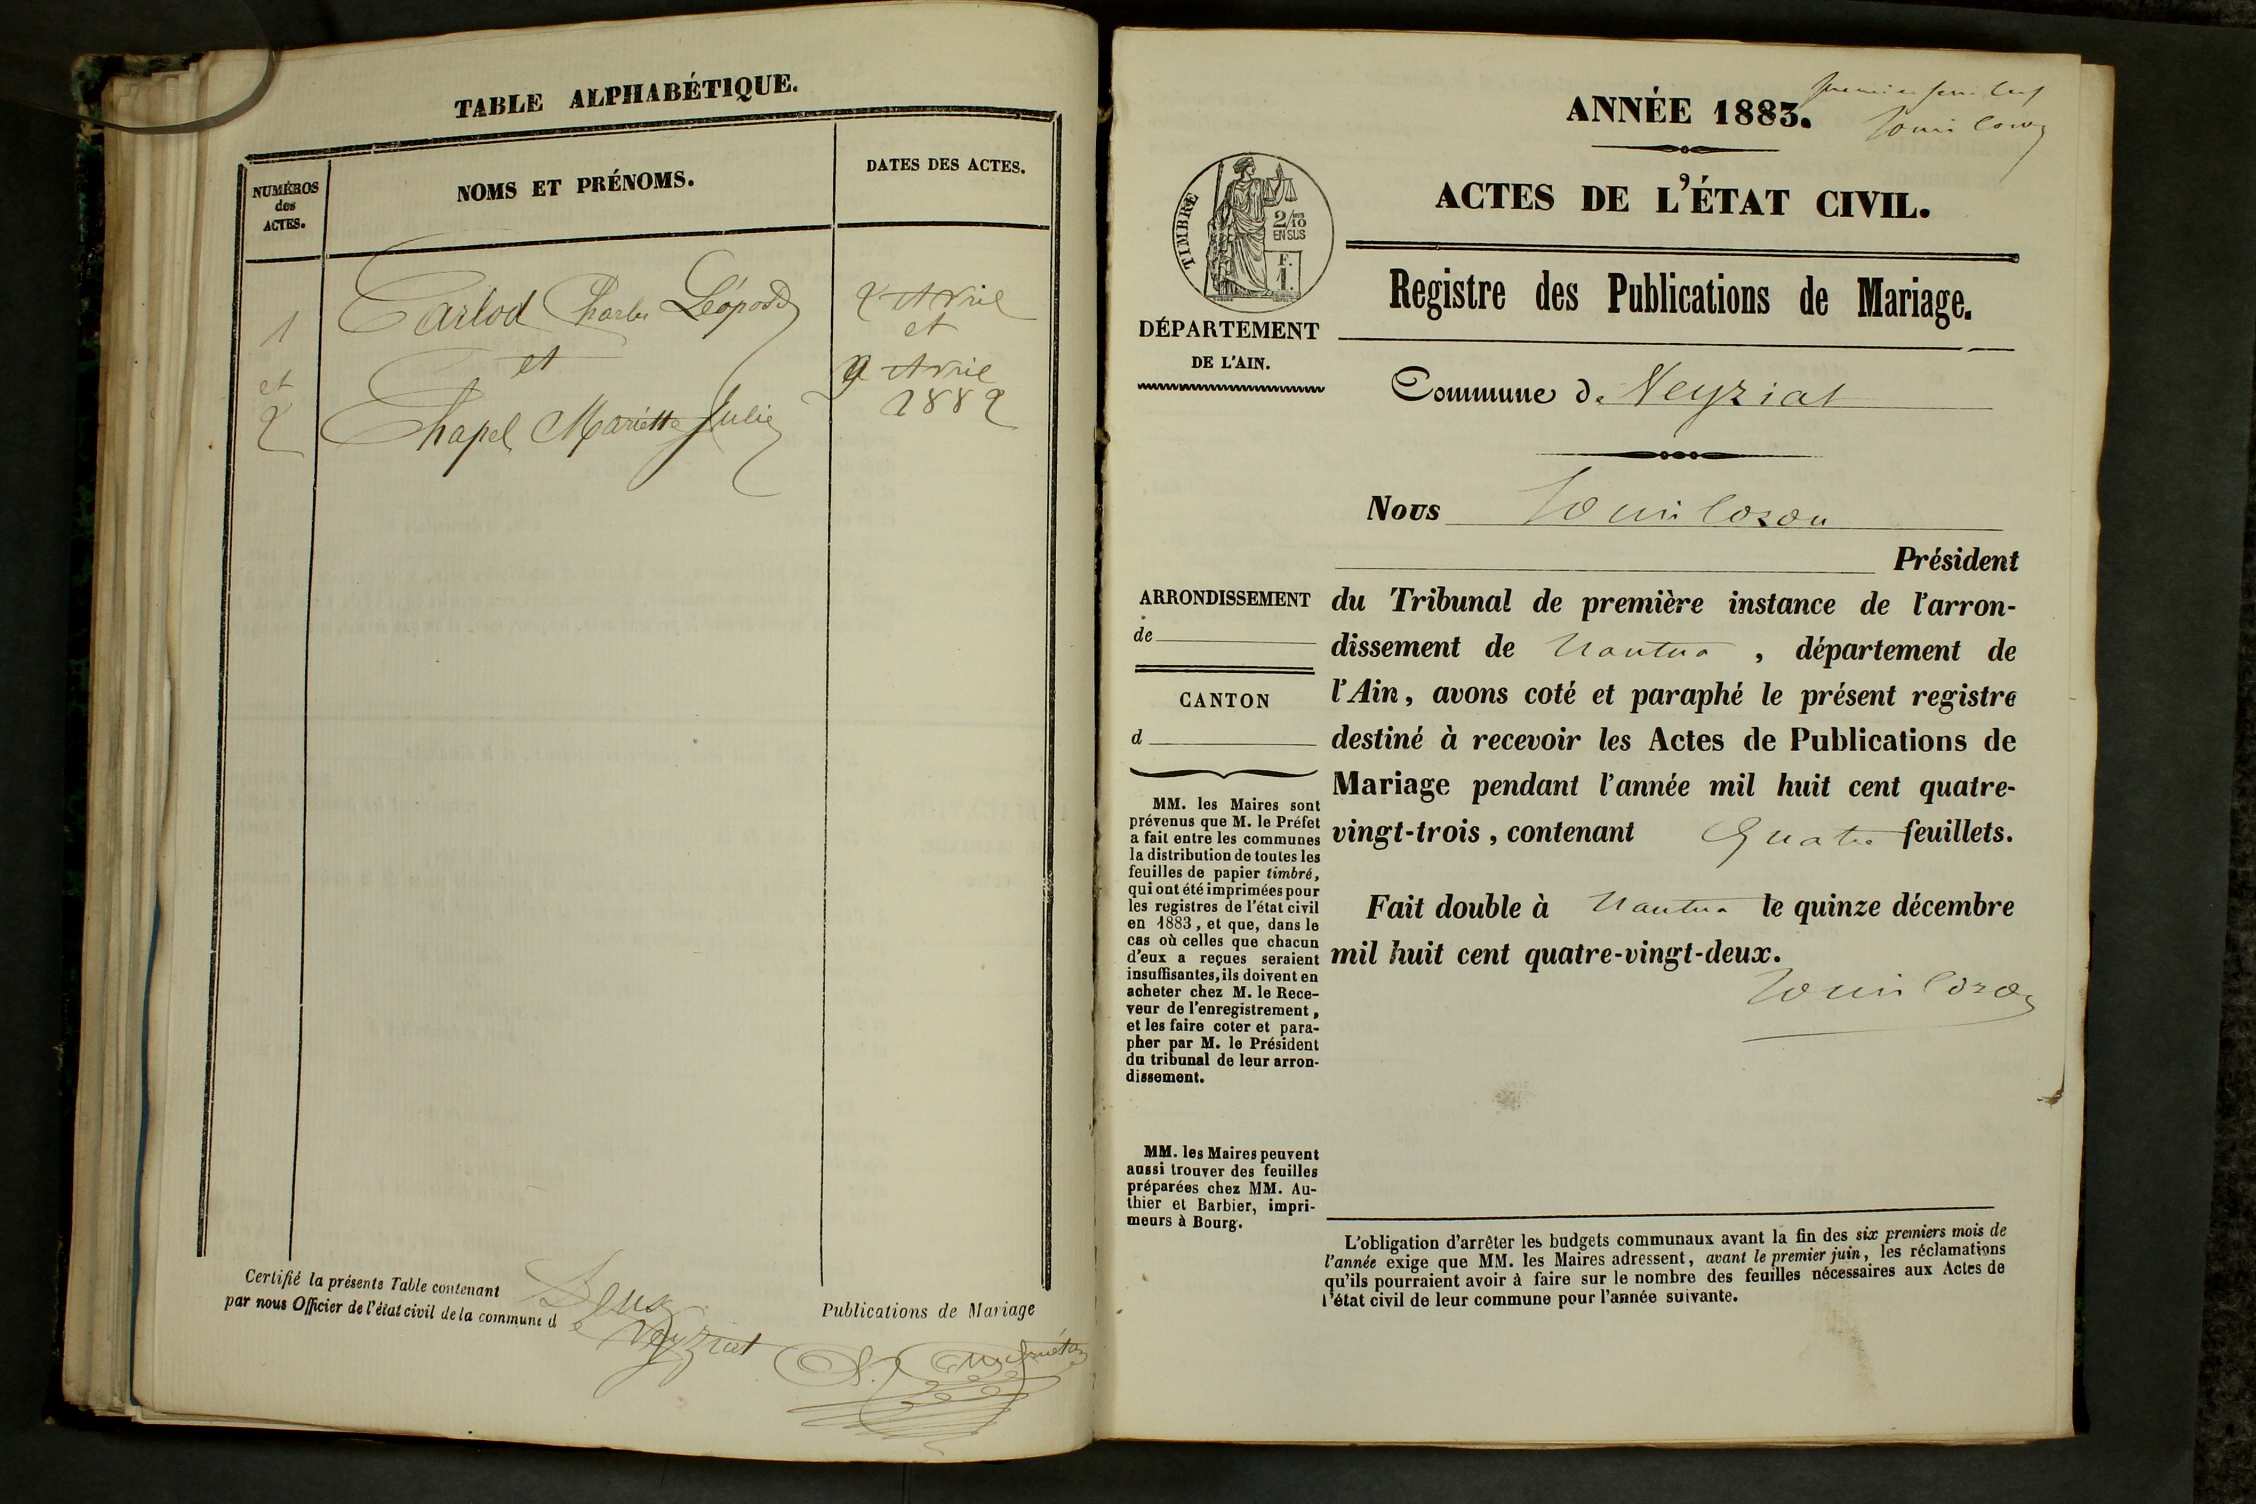 TABLE ALPHABÉTIQUE.
NUMÉROS
des
ACTES.
NOMS ET PRÉNOMS.
DATES DES ACTES.
1
et
2
Carlod Charles Léopold
et
Chapel Mariette Julie
2 Avril
et
9 Avril
1882
Certifié la présente Table contenant Deux Publications de Mariage
par nous Officier de l'état civil de la commune de Veyziat
ANNÉE 1883.
premier feuillet
ACTES DE L'ÉTAT CIVIL.
TIMBRE
2/10 EN SUS
F.
1.
Registre des Publications de Mariage.
DÉPARTEMENT
DE L'AIN.
Commune de Veyziat
Nous
Président
du Tribunal de première instance de l'arron-
dissement de Nantua, département de
l'Ain, avons coté et paraphé le présent registre
destiné à recevoir les Actes de Publications de
Mariage pendant l'année mil huit cent quatre-
vingt-trois, contenant Quatre feuillets.
Fait double à Nantua le quinze décembre
mil huit cent quatre-vingt-deux.
ARRONDISSEMENT
de
CANTON
d
MM. les Maires sont
prévenus que M. le Préfet
a fait entre les communes
la distribution de toutes les
feuilles de papier timbré,
qui ont été imprimées pour
les registres de l'état civil
en 1883, et que, dans le
cas où celles que chacun
d'eux a reçues seraient
insuffisantes, ils doivent en
acheter chez M. le Rece-
veur de l'enregistrement,
et les faire coter et para-
pher par M. le Président
du tribunal de leur arron-
dissement.
MM. les Maires peuvent
aussi trouver des feuilles
préparées chez MM. Au-
thier et Barbier, impri-
meurs à Bourg.
L'obligation d'arrêter les budgets communaux avant la fin des six premiers mois de
l'année exige que MM. les Maires adressent, avant le premier juin, les réclamations
qu'ils pourraient avoir à faire sur le nombre des feuilles nécessaires aux Actes de
l'état civil de leur commune pour l'année suivante.